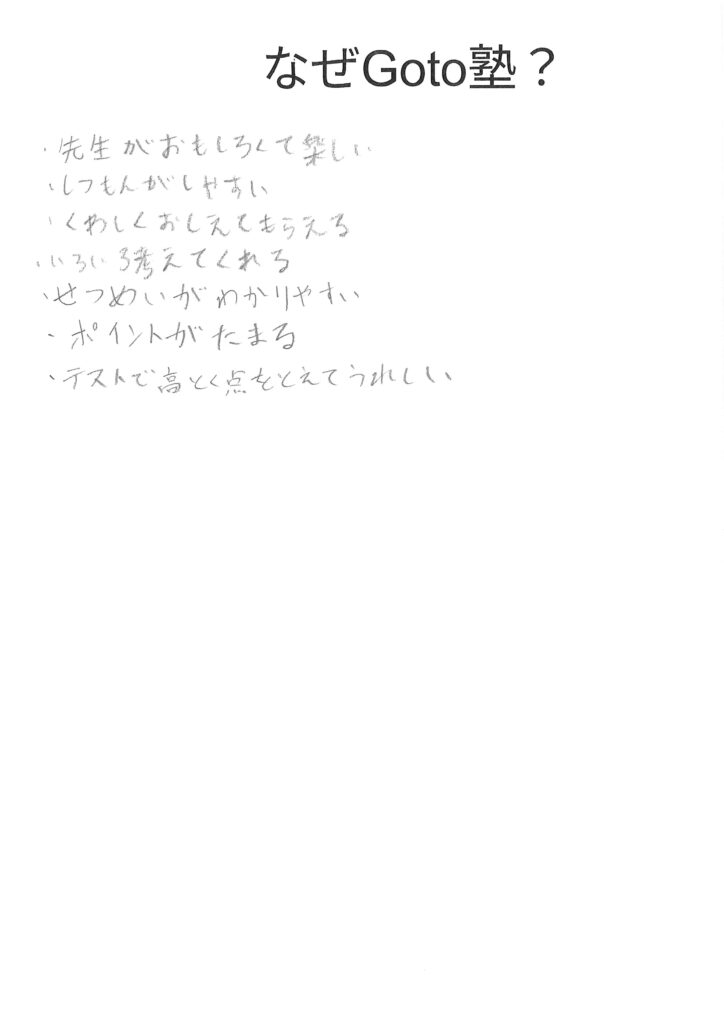 なぜGoto塾？
・先生がおもしろくて楽しい
・しつもんがしやすい
・くわしくおしえてもらえる
・いろいろ考えてくれる
・せつめいがわかりやすい
・ポイントがたまる
・テストで高とく点をとえてうれしい